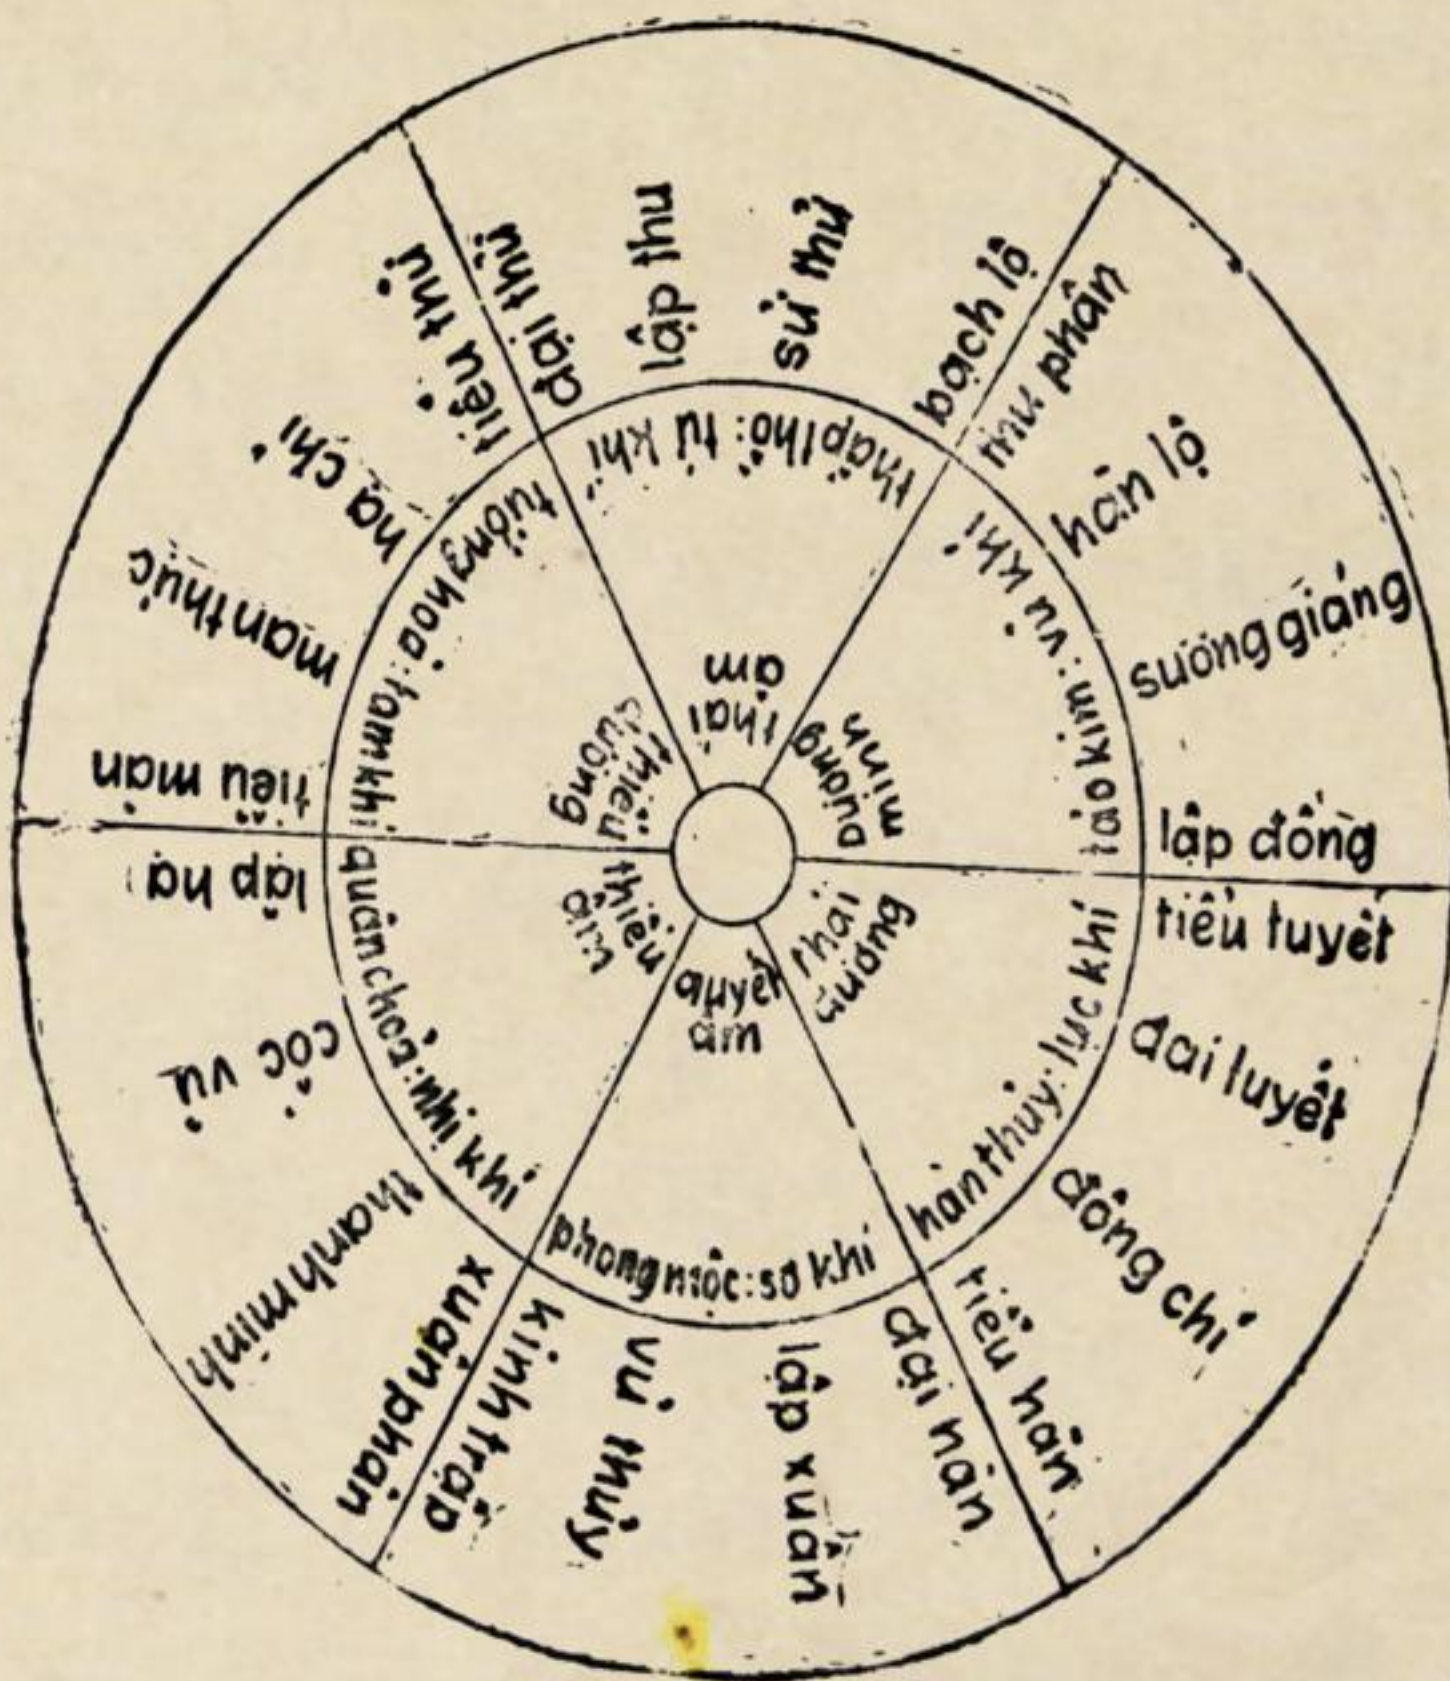 đại thử
lập thu
sử thử
bạch lộ
thu phân
hàn lộ
sương giáng
lập đông
tiểu tuyết
đại tuyết
đông chí
tiểu hàn
đại hàn
lập xuân
vũ thủy
kinh trập
xuân phân
thanh minh
cốc vũ
lập hạ
tiểu mãn
man thực
hạ chí
tiểu thử
thấp thổ: tứ khí
táo kim: vũ khí
hàn thủy: lục khí
phong mộc: sơ khí
quân hoả: nhị khí
tướng hoả: tam khí
thái
âm
dương
minh
thái
dương
quyết
âm
thiếu
âm
thiếu
dương